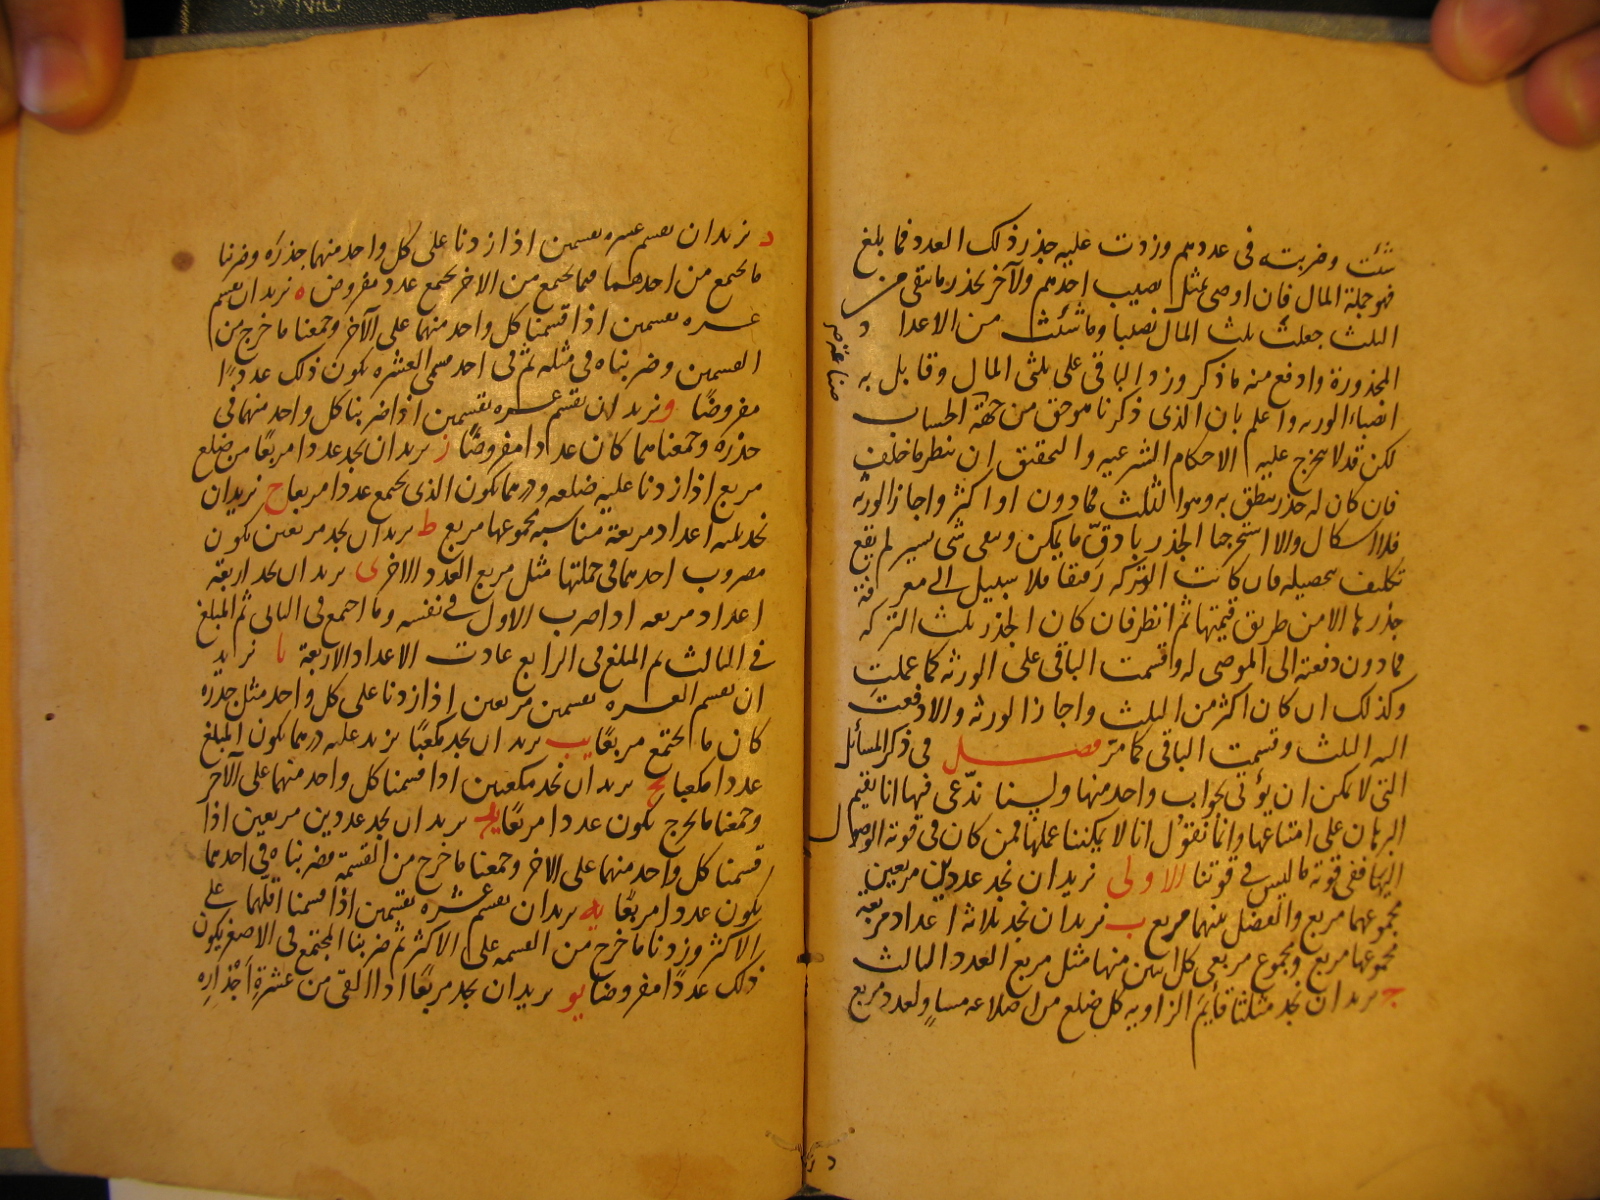 شئت وضربته في عددهم وزدت عليه جذر ذلك العدد فما بلغ
فهو جملة المال فان اوصى بمثل نصيب احدهم ولآخر بجذر ما تبقى من
الثلث جعلت ثلث المال نصيبا وما شئت من الاعداد
المجذورة وادفع منه ما ذكر وزد الباقي على ثلثي المال وقابل به
انصباء الورثه واعلم بان الذي ذكرنا هو حق من جهة الحساب
لكن قد لا يخرج عليه الاحكام الشرعيه والتحقيق ان ينظر ما خلف
فان كان له جذر ينطق به وهو الثلث فما دون او اكثر واجاز الورثه
فلا اشكال والا استخرجنا الجذر بادق ما يمكن وبقى شى يسير لم يقع
تكليف بتحصيله فان كانت التركه رقيقا فلا سبيل الى معرفة
جذرها الا من طريق قيمتها ثم انظر فان كان الجذر ثلث التركه
فما دون دفعته الى الموصى له وقسمت الباقى على الورثه كما عملت
وكذلك ان كان اكثر من الثلث واجاز الورثه والا دفعت
اليه الثلث وقسمت الباقي كما مر فصل في ذكر المسائل
التى لا يمكن ان يؤتى بجواب واحد منها ولسنا ندّعى فيها انا نقيم
البرهان على امتناعها وانما نقول انا لا يمكننا عملها فمن كان في قوته الوصول
اليها ففى قوته ما ليس في قوتنا الاولى نريد ان نجد عددين مربعين
مجموعهما مربع والفضل بينهما مربع ب نريد ان نجد ثلاثة اعداد مربعة
مجموعها مربع ومجموع مربعي كل اثنين منها مثل مربع العدد الثالث
ج نريد ان نجد مثلثا قايم الزاويه كل ضلع من اضلاعه مساوٍ لعدد مربع
د نريد ان نقسم عشره بقسمين اذا زدنا على كل واحد منهما جذره وضربنا
ما يجتمع من احدهما فيما يجتمع من الاخر يجتمع عدد مفروض ه نريد ان نقسم
عشره بقسمين اذا قسمنا كل واحد منهما على الآخر وجمعنا ما خرج من
القسمين وضربناه في مثله ثم في احد قسمى العشره يكون ذلك عددًا
مفروضًا و نريد ان نقسم عشره بقسمين اذا ضربنا كل واحد منهما في
جذره وجمعناهما كان عددا مفروضًا ز نريد ان نجد عددا مربعًا من ضلع
مربع اذا زدنا عليه ضلعه ودرهما يكون الذى يجتمع عددا مربعا ح نريد ان
نجد ثلثه اعداد مربعة مناسبه مجموعها مربع ط نريد ان نجد مربعين يكون
مضروب احدهما في جملتها مثل مربع العدد الاخر ى نريد ان نجد اربعة
اعداد مربعه اذا ضرب الاول في نفسه وما اجتمع فى الثانى ثم المبلغ
في الثالث ثم المبلغ فى الرابع عادت الاعداد الاربعة يا نريد
ان نقسم العشره بقسمين مربعين اذا زدنا على كل واحد مثل جذره
كان ما يجتمع مربعًا يب نريد ان نجد مكعبًا نزيد عليه درهما يكون المبلغ
عددا مكعبا يج نريد ان نجد مكعبين اذا قسمنا كل واحد منهما على الآخر
وجمعنا ما يخرج يكون عددا مربعًا يد نريد ان نجد عددين مربعين اذا
قسمنا كل واحد منهما على الاخر وجمعنا ما خرج من القسمة فضربناه في احدهما
يكون عددا مربعًا يه نريد ان نقسم عشره بقسمين اذا قسمنا اقلهما على
الاكثر وزدنا ما خرج من القسمه على الاكثر ثم ضربنا المجتمع في الاصغر يكون
ذلك عددًا مفروضا يو نريد ان نجد مربعًا اذا القى من عشرة اَجْذارِه